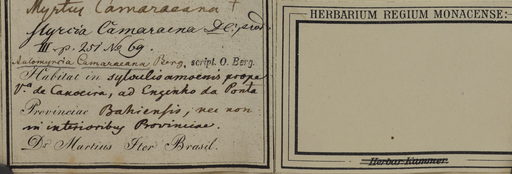 Myrtus Camaraeana +
Myrcia Camaraeana DC. prod.
III. p. 251 No 69.
Aulomyrcia Camaraeana Berg, script. O. Berg.
Habitat in sylvulis amoenis prope
Va. de Canoeira, ad Engenho da Ponta
Provinciae Bahiensis, nec non
in interioribus Provinciae.
Dr Martius Iter Brasil.
HERBARIUM REGIUM MONACENSE:
Herbar. Kummer.